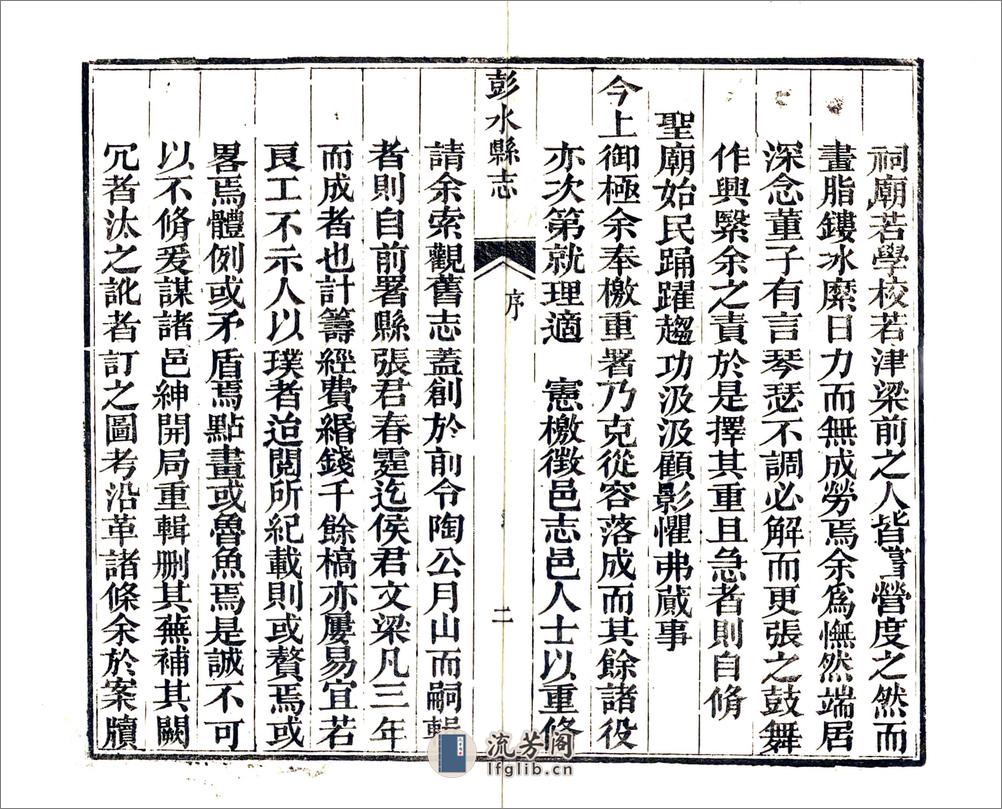 祠廟若學校若津梁前之人皆嘗營度之然而
畫脂鏤冰縻日力而無成勞焉余為憮然端居
深念董子有言琴瑟不調必解而更張之鼓舞
作興緊余之責於是擇其重且急者則自脩
聖廟始民踊躍趨功汲汲顧影懼弗蕆事
今上御極余奉檄重署乃克從容落成而其餘諸役
亦次第就理適 憲檄徵邑志邑人士以重脩
彭水縣志 序 二
請余索觀舊志蓋創於前令陶公月山而嗣輯
者則自前署縣張君春霆迄侯君文梁凡三年
而成者也計籌經費緡錢千餘槁亦屢易宜若
良工不示人以璞者迨閱所紀載則或贅焉或
畧焉體例或矛盾焉點畫或魯魚焉是誠不可
以不脩爰謀諸邑紳開局重輯刪其蕪補其闕
冗者汰之訛者訂之圖考沿革諸條余於案牘
流芳閣
lfglib.cn